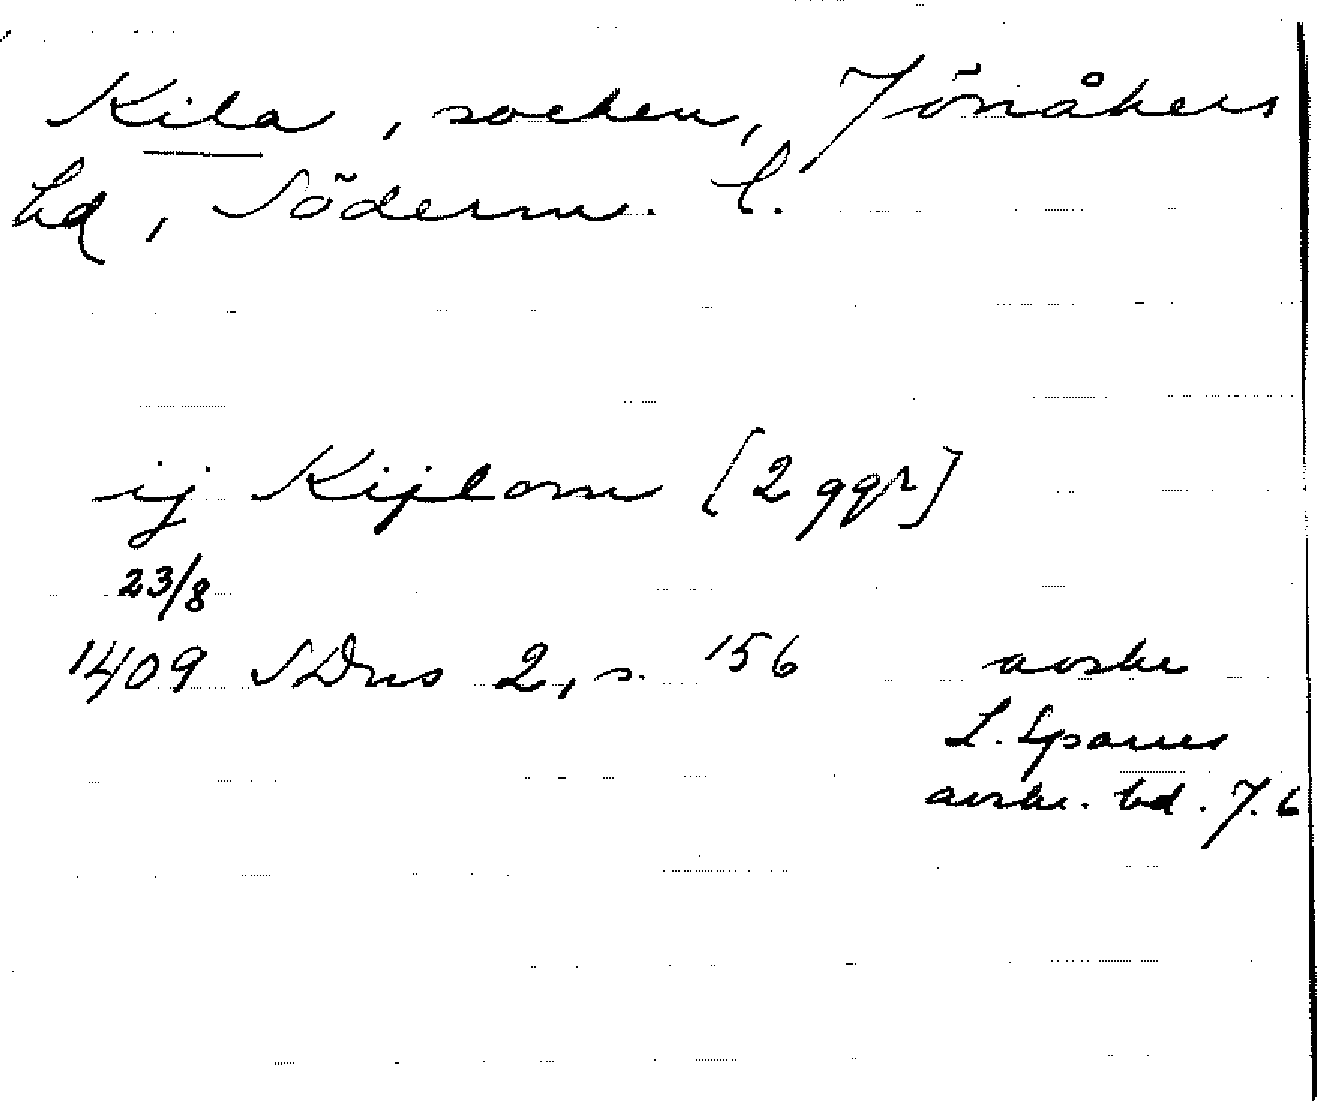 Kila, socken, Jönåkers
hd, Söderm. l.
ij Kijlom [2 ggr]
23/8
1409 SDns 2, s. 156 avskr
L. Sparres
avskr. bd. 7.6